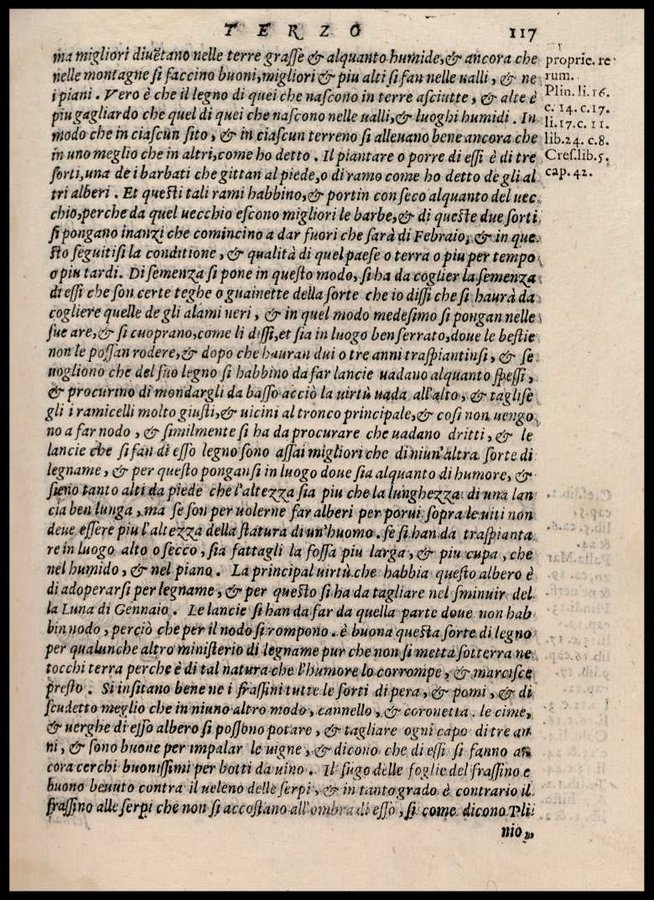 TERZO 117
ma migliori diuẽtano nelle terre grasse & alquanto humide,& ancora che
nelle montagne si faccino buoni,migliori & piu alti si fan nelle ualli, & ne
i piani. Vero è che il legno di quei che nascono in terre asciutte, & alte è
piu gagliardo che quel di quei che nascono nelle ualli,& luoghi humidi. In
modo che in ciascun sito, & in ciascun terreno si alleuano bene ancora che
in uno meglio che in altri,come ho detto. Il piantare o porre di essi è di tre
sorti,una de i barbati che gittan al piede,o di ramo come ho detto de gli al
tri alberi. Et questi tali rami habbino,& portin con seco alquanto del uec
chio,perche da quel uecchio escono migliori le barbe,& di queste due sorti
si pongano inanzi che comincino a dar fuori che sarà di Febraio, & in que
sto seguitisi la conditione, & qualità di quel paese o terra o piu per tempo
o piu tardi. Di semenza si pone in questo modo, si ha da coglier la semenza
di essi che son certe teghe o guainette della sorte che io dissi che si haurà da
cogliere quelle de gli alami neri, & in quel modo medesimo si pongan nelle
sue are,& si cuoprano,come li dissi,et sia in luogo ben serrato,doue le bestie
non le possan rodere,& dopo che hauran dui o tre anni traspiantinsi, & se
uogliono che del suo legno si habbino da far lancie uadano alquanto spessi,
& procurino di mondargli da basso acciò la uirtù uada all'alto, & taglise
gli i ramicelli molto giusti,& uicini al tronco principale,& cosi non uengo
no a far nodo, & similmente si ha da procurare che uadano dritti, & le
lancie che si fan di esso legno sono assai migliori che di niun'altra sorte di
legname, & per questo pongansi in luogo doue sia alquanto di humore, &
sieno tanto alti da piede che l'altezza sia piu che la lunghezza di una lan
cia ben lunga, ma se son per uolerne far alberi per porui sopra le uiti non
deue essere piu l'altezza della statura di un'huomo. se si han da traspianta
re in luogo alto o secco, sia fattagli la fossa piu larga, & piu cupa, che
nel humido, & nel piano. La principal uirtù che habbia questo albero è
di adoperarsi per legname, & per questo si ha da tagliare nel sminuir del
la Luna di Gennaio. Le lancie si han da far da quella parte doue non hab
bin nodo, perciò che per il nodo si rompono. è buona questa sorte di legno
per qualunche altro ministerio di legname pur che non si metta sotterra ne
tocchi terra perche è di tal natura che l'humore lo corrompe, & marcisce
presto. Si insitano bene ne i frassini tutte le sorti di pera, & pomi, & di
scudetto meglio che in niuno altro modo, cannello, & coronetta. le cime,
& uerghe di esso albero si possono potare, & tagliare ogni capo di tre an
ni, & sono buone per impalar le uigne, & dicono che di essi si fanno an
cora cerchi buonissimi per botti da uino. Il sugo delle foglie del frassino e
buono beuuto contra il ueleno delle serpi, & in tanto grado è contrario il
frassino alle serpi che non si accostano all'ombra di esso, si come dicono Pli
nio,
proprie. re
rum.
Plin. li. 16.
c. 14. c. 17.
li. 17. c. 11.
lib. 24. c. 8.
Cres. lib. 5.
cap. 42.